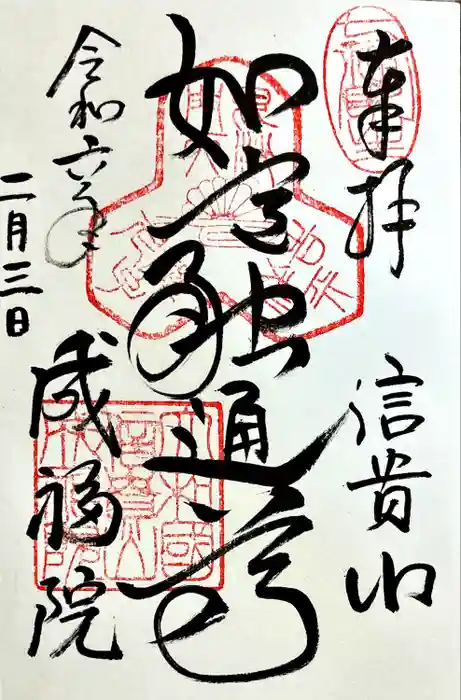 奉拝
信貴山
如意融通尊
令和六年
二月三日
成福院